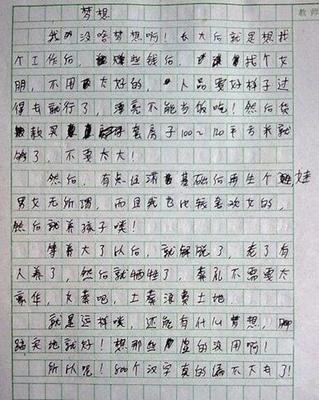 梦想
我没啥梦想啊！长大后就是想找
个工作后，赚些钱后，找个女
朋，不用太好的，人品要好样子过
得去就行了，漂亮不能当饭吃！然后贷
款买套房子100～120平方米就
够了，不要太大！
然后，有点经济基础后再生个娃
男女无所谓，而且我也比较喜欢女的，
然后就养孩子喽！
等养大了以后，就解脱了，老了有
人养了，然后就牺牲了，葬礼不需要太
豪华，火葬吧，土葬浪费土地。
就是这样喽，还能有什么梦想，脚
踏实地就好！想那些虚的没用啊！
所以呢！800个汉字真的编不下去了！